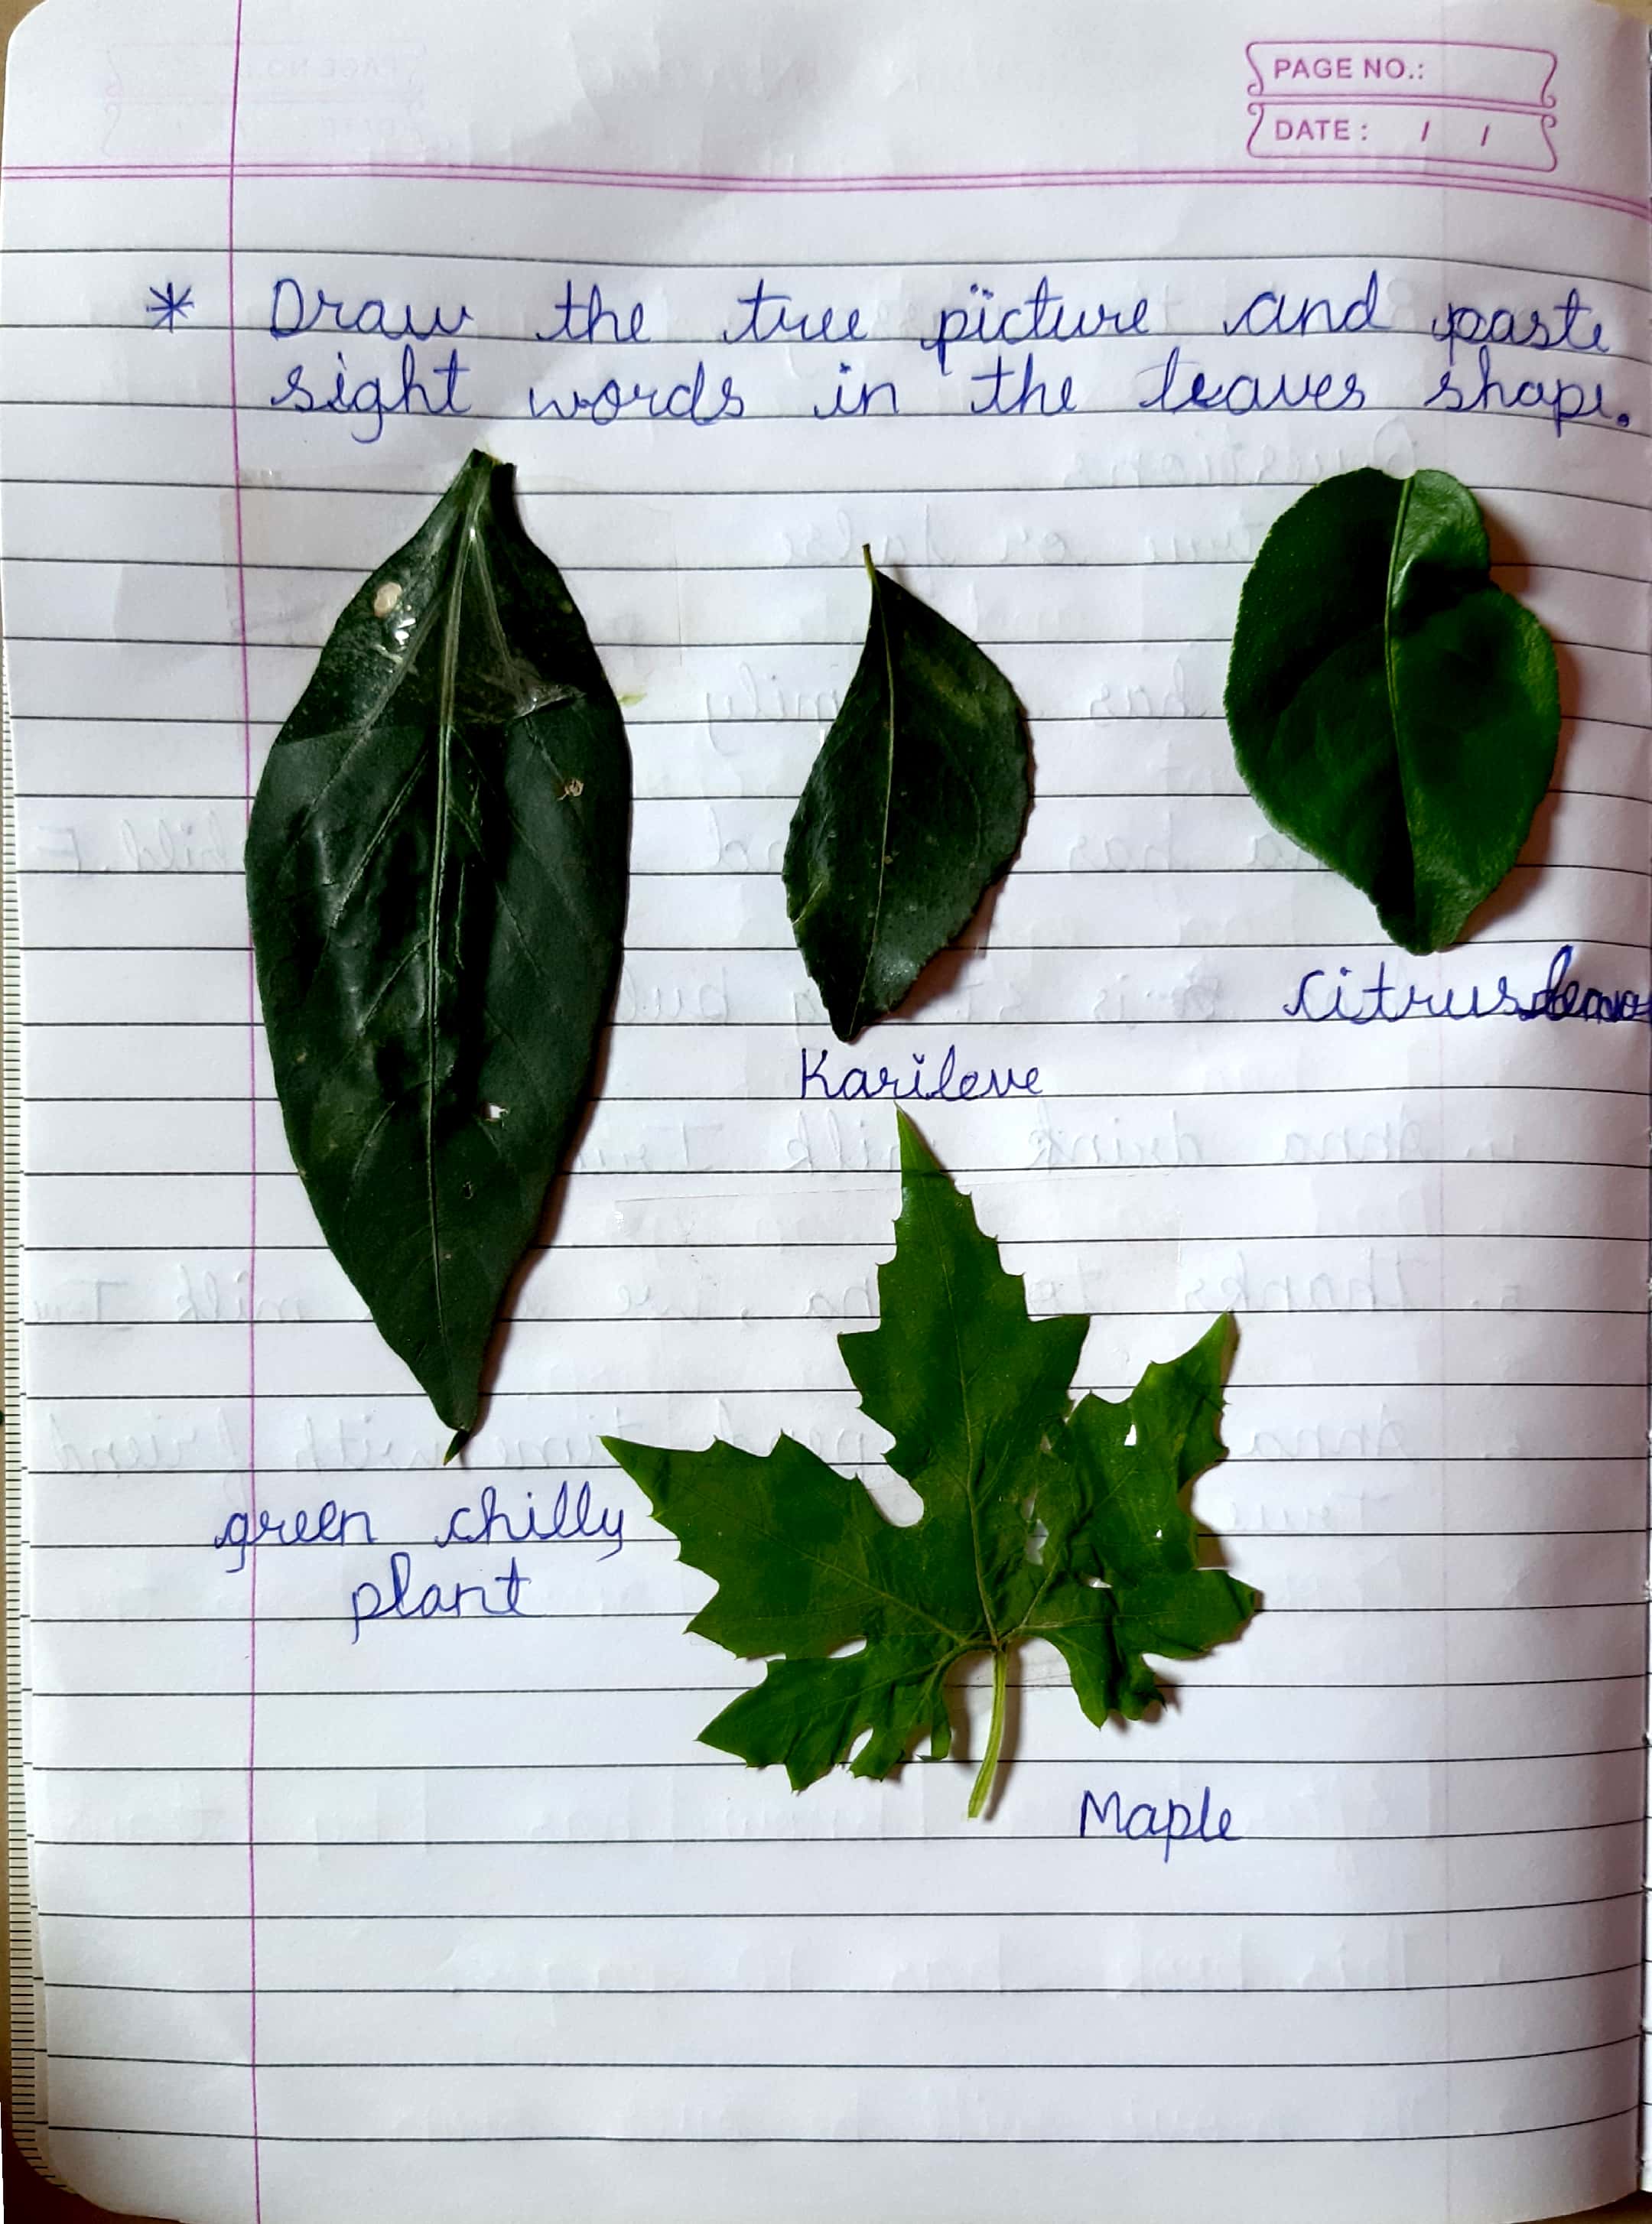 PAGE NO.:
DATE: / /
* Draw the tree picture and paste
sight words in the leaves shape.
citrus
Karileve
green chilly
plant
Maple